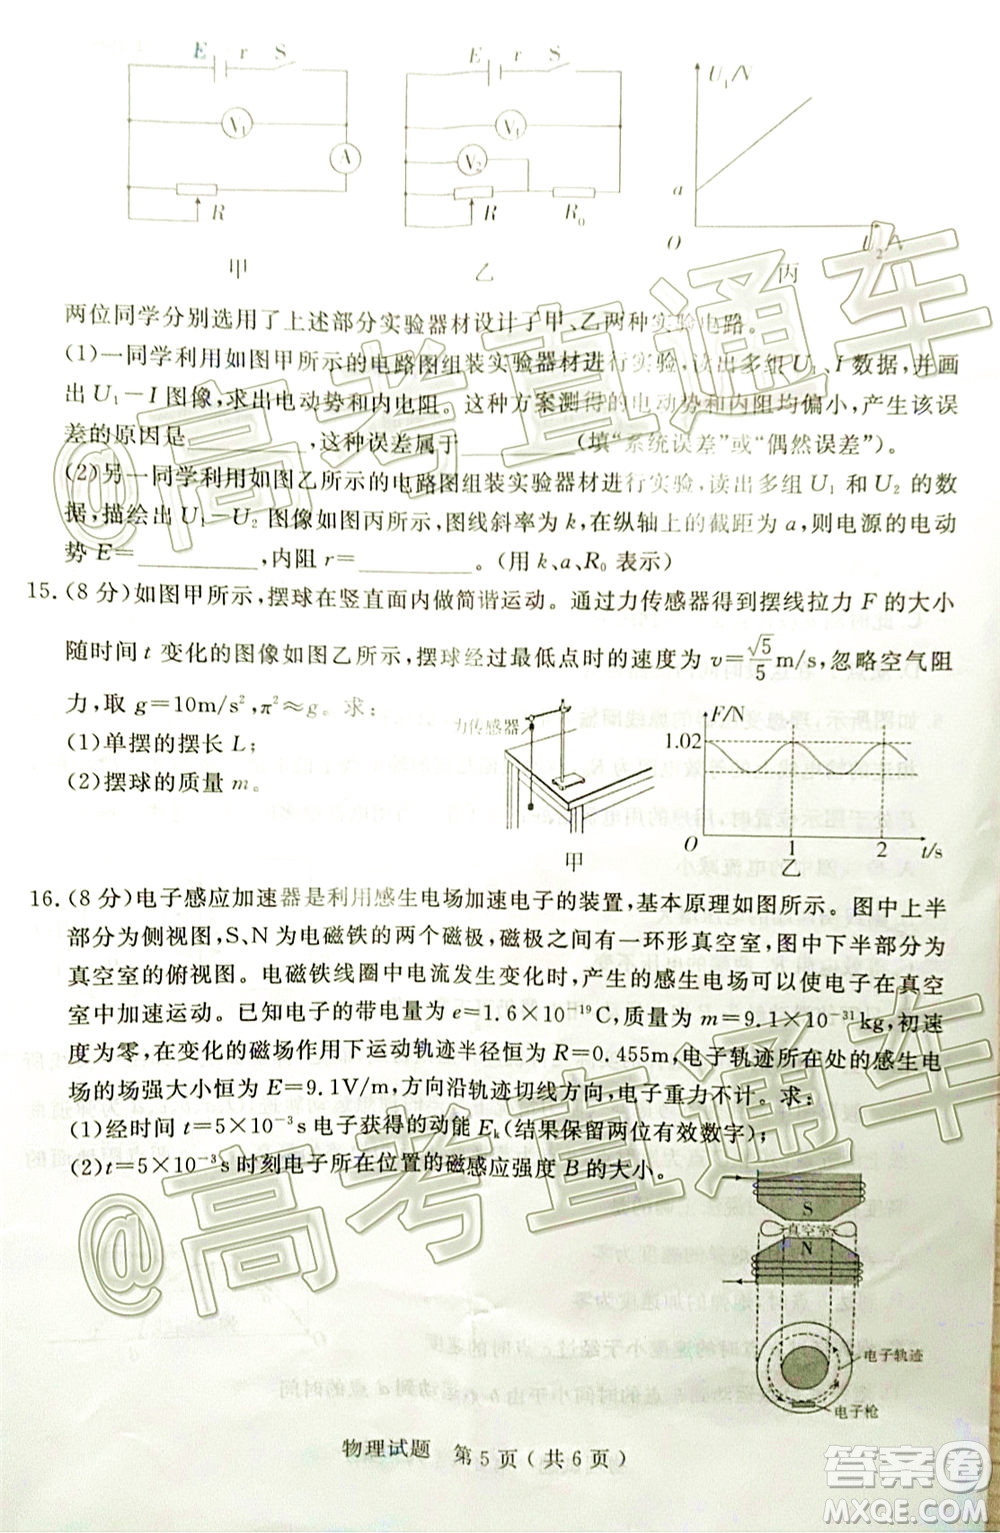 E r S
V₁
A
R
甲
E r S
V₁
V₂
R R₀
乙
U₁/V
a
O U₂/V
丙
两位同学分别选用了上述部分实验器材设计了甲、乙两种实验电路。
(1)一同学利用如图甲所示的电路图组装实验器材进行实验,读出多组 U₁、I 数据,并画
出 U₁－I 图像,求出电动势和内电阻。这种方案测得的电动势和内阻均偏小,产生该误
差的原因是________,这种误差属于________(填“系统误差”或“偶然误差”)。
(2)另一同学利用如图乙所示的电路图组装实验器材进行实验,读出多组 U₁ 和 U₂ 的数
据,描绘出 U₁－U₂ 图像如图丙所示,图线斜率为 k,在纵轴上的截距为 a,则电源的电动
势 E＝________,内阻 r＝________。(用 k、a、R₀ 表示)
15.(8 分)如图甲所示,摆球在竖直面内做简谐运动。通过力传感器得到摆线拉力 F 的大小
随时间 t 变化的图像如图乙所示,摆球经过最低点时的速度为 v＝√5/5 m/s,忽略空气阻
力,取 g＝10m/s²,π²≈g。求:
(1)单摆的摆长 L;
(2)摆球的质量 m。
力传感器
甲
F/N
1.02
O 1 2 t/s
乙
16.(8 分)电子感应加速器是利用感生电场加速电子的装置,基本原理如图所示。图中上半
部分为侧视图,S、N 为电磁铁的两个磁极,磁极之间有一环形真空室,图中下半部分为
真空室的俯视图。电磁铁线圈中电流发生变化时,产生的感生电场可以使电子在真空
室中加速运动。已知电子的带电量为 e＝1.6×10⁻¹⁹C,质量为 m＝9.1×10⁻³¹kg,初速
度为零,在变化的磁场作用下运动轨迹半径恒为 R＝0.455m,电子轨迹所在处的感生电
场的场强大小恒为 E＝9.1V/m,方向沿轨迹切线方向,电子重力不计。求:
(1)经时间 t＝5×10⁻³s 电子获得的动能 Eₖ(结果保留两位有效数字);
(2)t＝5×10⁻³s 时刻电子所在位置的磁感应强度 B 的大小。
S
真空室
N
电子轨迹
电子枪
物理试题 第 5 页(共 6 页)
@高考直通车
@高考直通车
答案卷
MXQE.COM